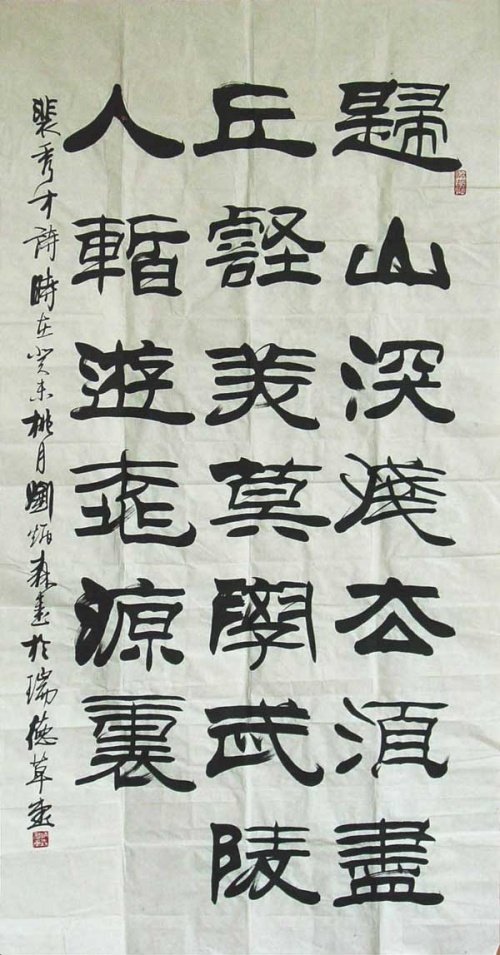 歸山深淺去須盡
丘壑美莫學武陵
人暫遊桃源裏
裴秀才詩時在癸未桃月劉炳森書於瑞德草堂